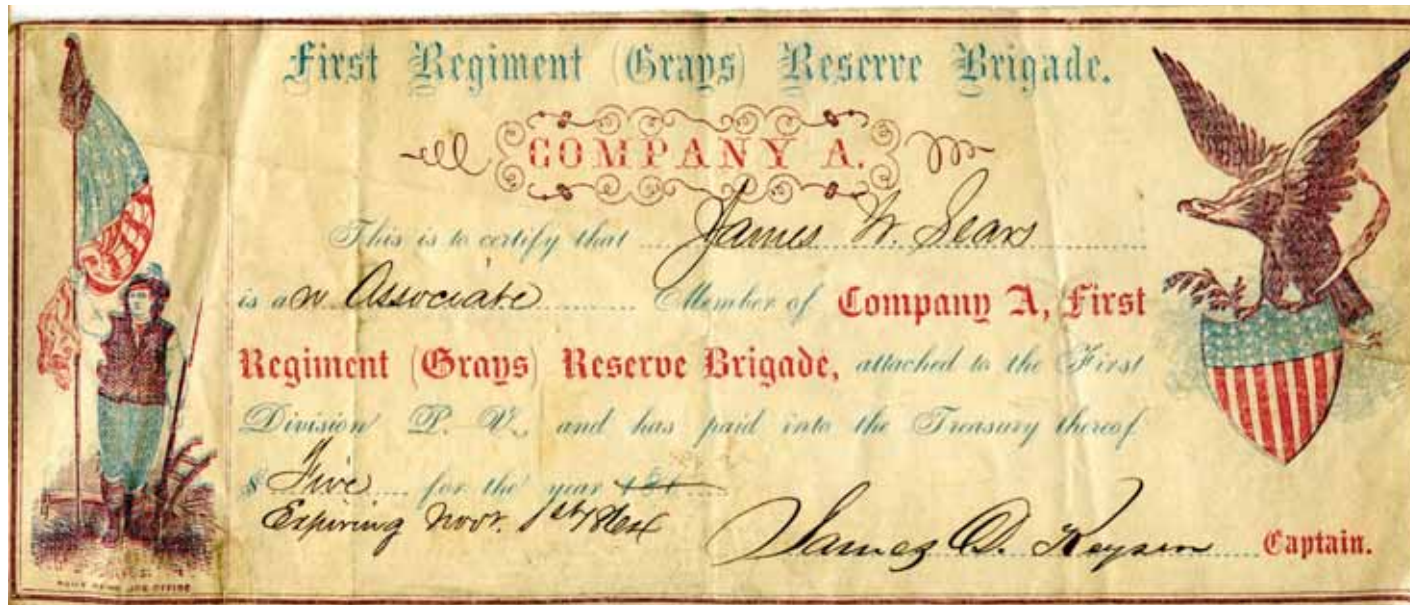 First Regiment (Grays) Reserve Brigade.
COMPANY A.
This is to certify that James W. Sears
is an Associate Member of Company A, First
Regiment (Grays) Reserve Brigade, attached to the First
Division P. V., and has paid into the Treasury thereof
$ Five for the year 186
Expiring Novr. 1st next
James D. Keyser Captain.
JOB OFFICE